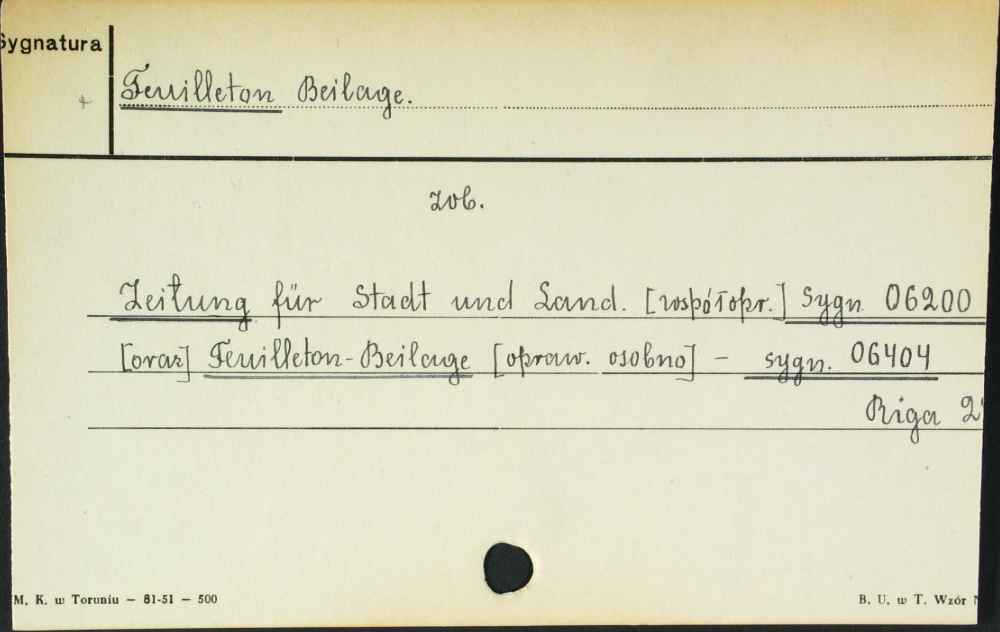 Sygnatura
Feuilleton Beilage.
zob.
Zeitung für Stadt und Land. [współopr.] Sygn. 06200
[oraz] Feuilleton-Beilage [opraw. osobno] – sygn. 06404
Riga 2
M. K. w Toruniu — 81-51 — 500
B. U. w T. Wzór